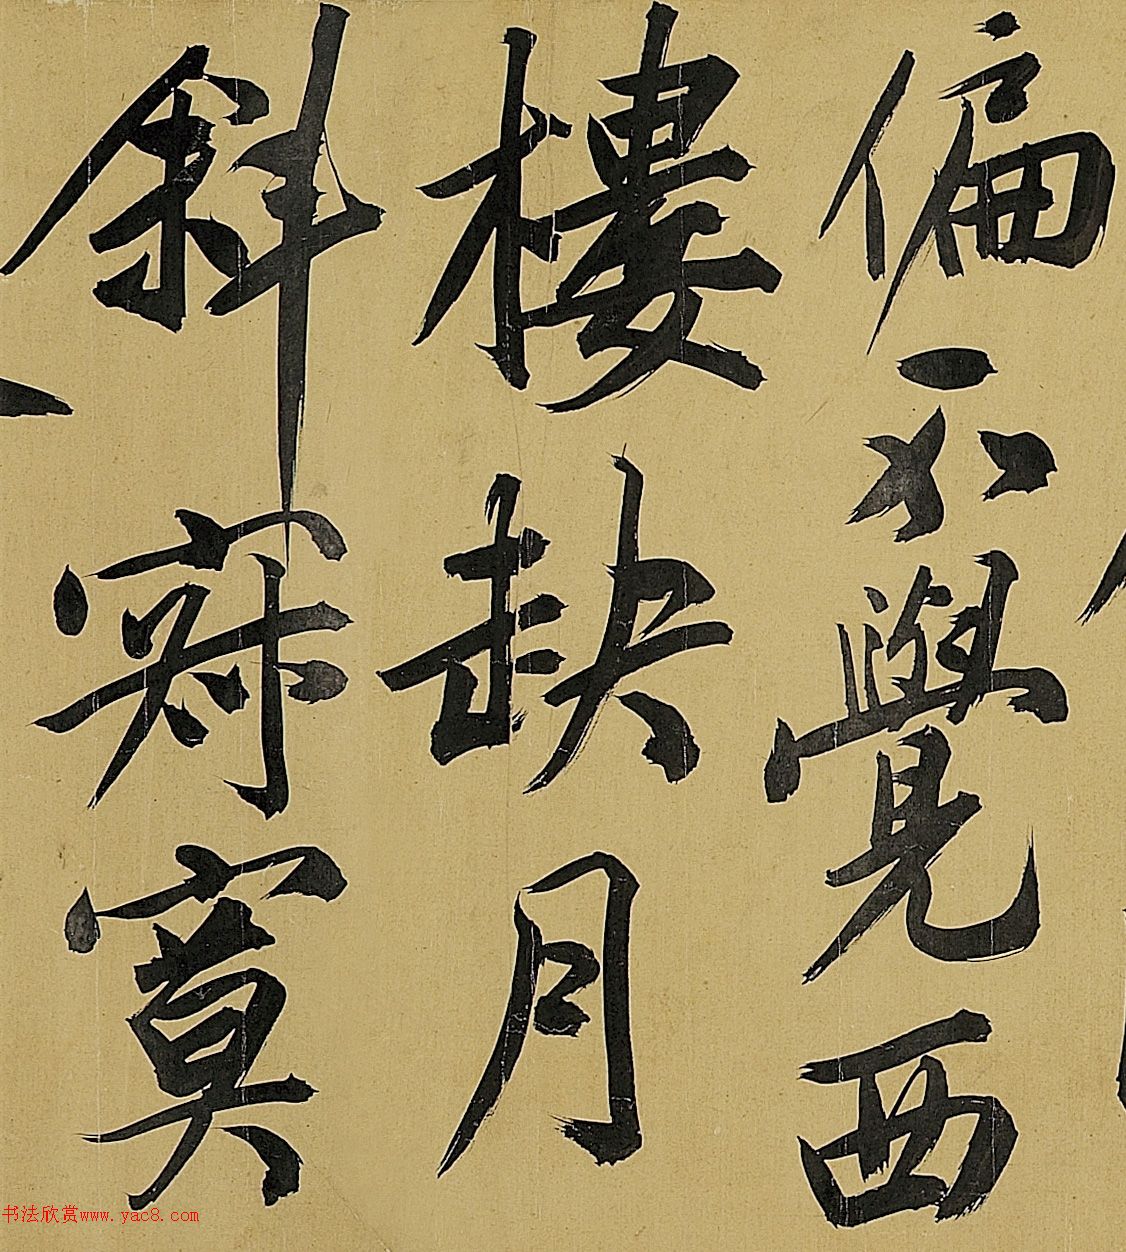 偏不覺西
樓缺月
斜寂寞
书法欣赏www.yac8.com